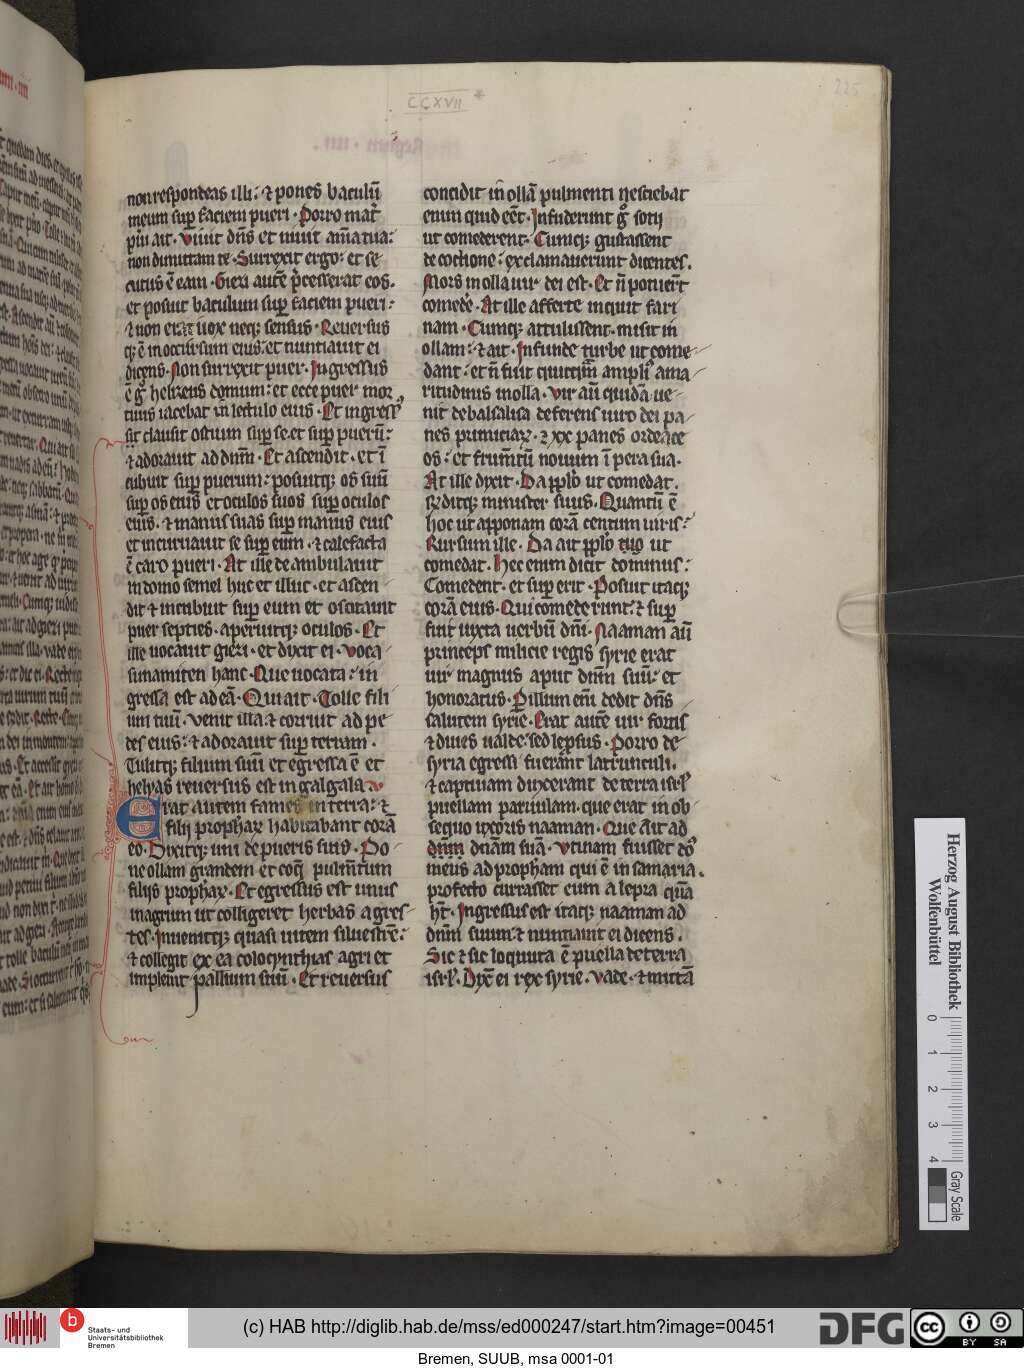 CCXVII *
225
non respondeas illi: ⁊ pones baculū
meum sup̄ faciem pueri · Porro mat̄
pūi ait · Viuit dn̄s et uiuit aīa tua:
non dimittam te · Surrexit ergo: et se
cutus ē eam · Giezi autē p̄cesserat eos ·
et posuit baculum sup̄ faciem pueri:
⁊ non erat uox neq; sensus · Reuersus
q; ē in occursum eius: et nuntiauit ei
dicens · Non surrexit puer · Ingressus
ē g̊ helizeus domum: et ecce puer mor
tuus iacebat in lectulo eius · Et ingress9
sit clausit ostium sup̄ se · et sup̄ puerū:
⁊ adorauit ad dn̄m · Et ascendit · et ī
cubuit sup̄ puerum: posuitq; os suū
sup̄ os eius et oculos suos sup̄ oculos
eius · ⁊ manus suas sup̄ manus eius
et incuruauit se sup̄ eum · ⁊ calefacta
ē caro pueri · At ille deambulauit
in domo semel huc et illuc · et ascen
dit ⁊ incubuit sup̄ eum et oscitauit
puer septies · aperuitq; oculos · Et
ille uocauit giezi · et dixit ei · Voca
sunamiten hanc · Que uocata: in
gressa est ad eā · Qui ait · Tolle fili
um tuū · Venit illa ⁊ corruit ad pe
des eius: ⁊ adorauit sup̄ terram ·
Tulitq; filium suū et egressa ē et
helyas reuersus est in galgala · V
Erat autem fames in terra: ⁊
filij prophaꝝ habitabant corā
eo · Dixitq; uni de pueris suis · Po
ne ollam grandem et coq̄ pulm̄tum
filijs prophaꝝ · Et egressus est unus
in agrum ut colligeret herbas agres
tes · Inuenitq; quasi uitem siluestrē:
⁊ collegit ex ea colocynthias agri et
impleuit pallium suū · Et reuersus
concidit in ollā pulmenti nesciebat
enim quid eēt · Infuderunt g̊ socij
ut comederent · Cumq; gustassent
de coctione: exclamauerunt dicentes ·
Mors in olla uir dei est · Et n̄ potuerūt
comedē · At ille afferte inquit fari
nam · Cumq; attulissent · misit in
ollam: ⁊ ait · Infunde turbe ut come
dant: et n̄ fuit quicq̄m ampli9 ama
ritudinis in olla · Vir aū quidā ue
nit de balsalisa deferens uiro dei pa
nes primiciaꝝ · ⁊ xx panes ordeace
os: et frum̄tū nouum ī pera sua ·
At ille dixit · Da pp̄lo ut comedat ·
Rn̄ditq; minister suus · Quantū ē
hoc ut apponam corā centum uiris:
Rursum ille · Da ait pp̄lo tuo ut
comedat · Hec enim dicit dominus:
Comedent · et sup̄erit · Posuit itaq;
corā eius · Qui comederunt: ⁊ sup̄
fuit iuxta uerbū dn̄i · Naaman aū
princeps milicie regis syrie erat
uir magnus aput dn̄m suū: et
honoratus · P illum em̄ dedit dn̄s
salutem syrie · Erat autē uir fortis
⁊ diues ualde: sed leprsus · Porro de
syria egressi fuerant latrunculi ·
⁊ captiuam duxerant de terra isrl̄
puellam paruulam · que erat in ob
sequio uxoris naaman · Que ait ad
dn̄m dn̄am suā · Vtinam fuisset dn̄s
meus ad propham qui ē in samaria ·
profecto curasset eum a lepra quā
h̄t · Ingressus est itaq; naaman ad
dn̄m suum: ⁊ nuntiauit ei dicens ·
Sic ⁊ sic loquuta ē puella de terra
isrl̄ · Dixē ei rex syrie · Vade · ⁊ mittā
Herzog August Bibliothek
Wolfenbüttel
0 1 2 3 4
Gray Scale
b
Staats- und
Universitätsbibliothek
Bremen
(c) HAB http://diglib.hab.de/mss/ed000247/start.htm?image=00451
DFG
cc BY SA
Bremen, SUUB, msa 0001-01